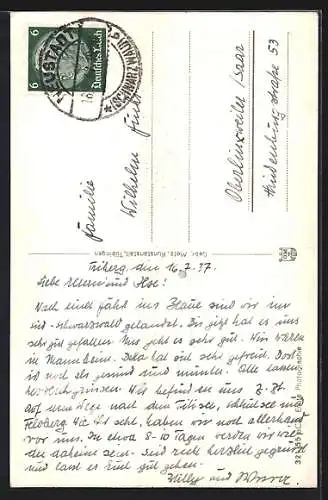 6 Deutsches Reich 6
NEUSTADT
(SCHWARZWALD)
Familie
Wilhelm
Oberlinxweiler / Saar
Hindenburgstraße 53
Gebr. Metz, Kunstanstalt, Tübingen
Echte Photographie
Triberg, den 16.7.37.
Liebe Eltern und Ilse!
Nach einer Fahrt ins Blaue sind wir im
süd-Schwarzwald gelandet. Bis jetzt hat es uns
sehr gut gefallen. Uns geht es sehr gut. Wir waren
in Mannheim. hat sich sehr gefreut. Dort
ist noch als gesund und munter. Alle lassen
herzlich grüssen. Wir befinden uns z. Zt.
auf dem Wege nach dem Titisee, Schluchsee und
Feldberg. Ihr seht, haben wir noch allerhand
vor uns. In etwa 8-10 Tagen werden wir wieder
daheime sein. seid recht herzlich gegrüsst
und lasst es Euch gut gehen.
Willy und